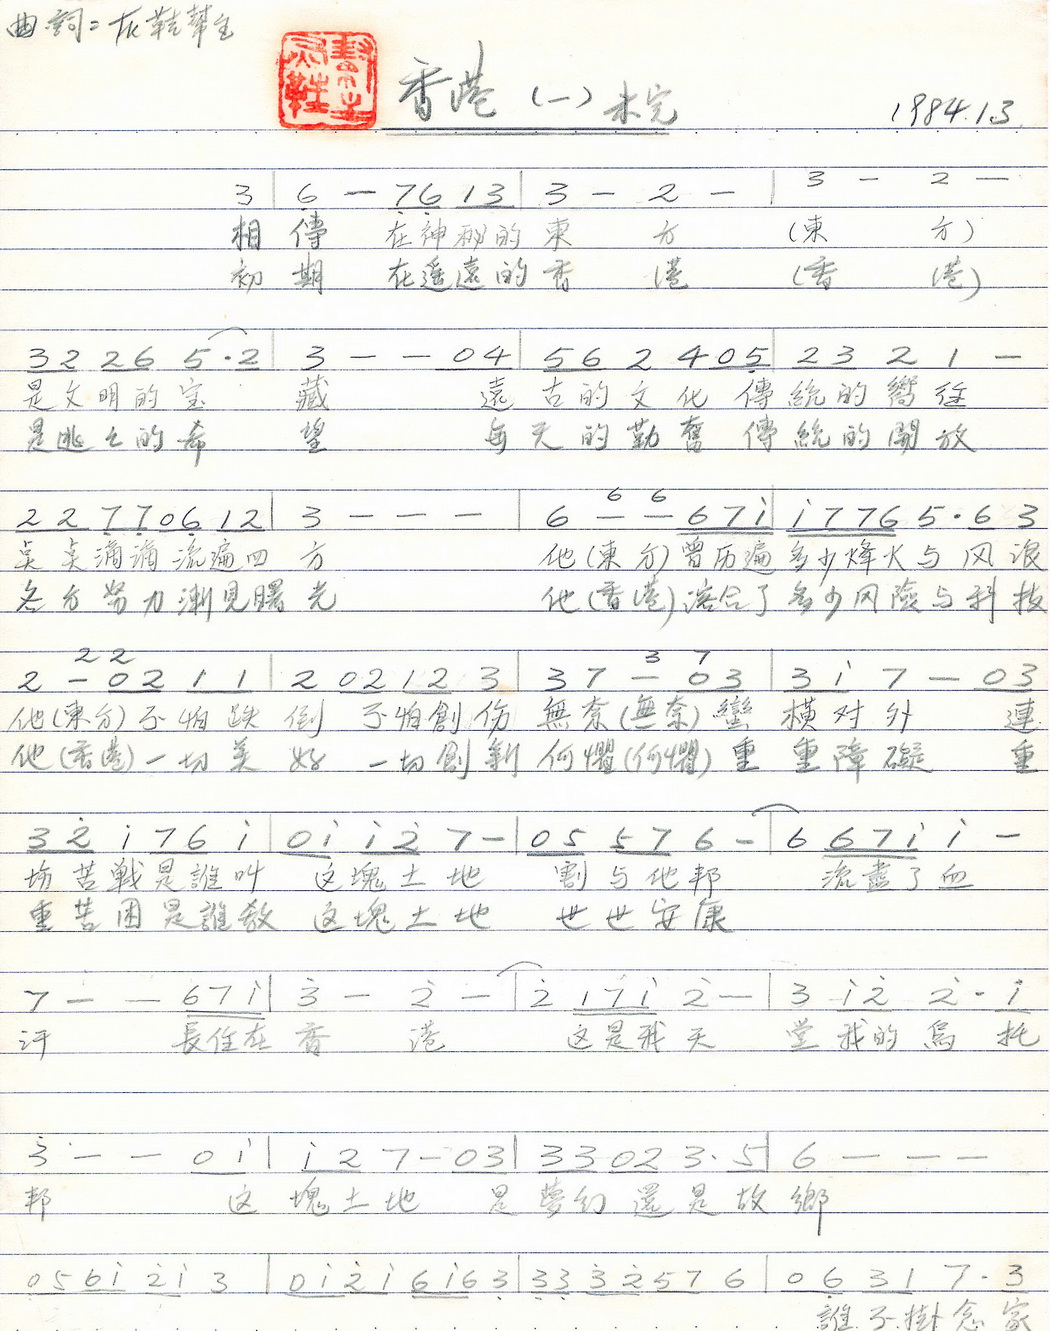 曲詞：灰鞋幫主
香港（一）未完
1984.1.3
3 | 6 — 76 13 | 3 — 2 — | 3 — 2 —
相 傳 在神秘的 東 方 （東 方）
初 期 在遥遠的 香 港 （香 港）
32 26 5·2 | 3 — — 04 | 56 2 4 05 | 23 2 1 —
是文明的宝 藏 遠 古的文化 傳 統的嚮往
是逃亡的希 望 每 天的勤奮 傳 統的開放
22 77 06 12 | 3 — — — | 6 — — 671 | 1776 5·6 3
6 6
点点滴滴流遍四 方 他（東方）曾历遍 多少烽火与风浪
各方努力漸見曙 光 他（香港）溶合了 多少风險与科技
2 2
2 — 02 11 | 2 02 12 3 | 37 — 03 | 31 7 — 03
3 7
他（東方）不怕跌 倒 不怕創伤 無奈（無奈）蠻 横对外 連
他（香港）一切美 好 一切創新 何懼（何懼）重 重障礙 重
32 1 7 6 1 | 01 12 7 — | 05 57 6 — | 6 671 1 —
場苦戦是誰叫 这塊土地 割与他邦 流盡了血
重苦困是誰教 这塊土地 世世安康
7 — — 671 | 3 — 2 — | 2 171 2 — | 3 12 2·1
汗 長住在 香 港 这是我天 堂我的烏托
3 — — 01 | 12 7 — 03 | 33 02 3·5 | 6 — — —
邦 这 塊土地 是 夢幻還是故 鄉
0561 21 3 | 0121 6163 | 33 32 57 6 | 06 31 7·3
誰不掛念家